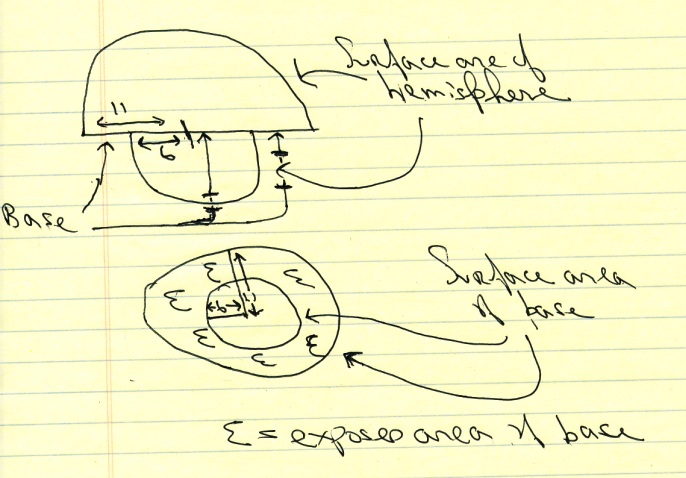 Surface are of
hemisphere
11
6
Base
Surface area
of base
11
6
Ɛ Ɛ Ɛ Ɛ Ɛ Ɛ
Ɛ = exposed area of base